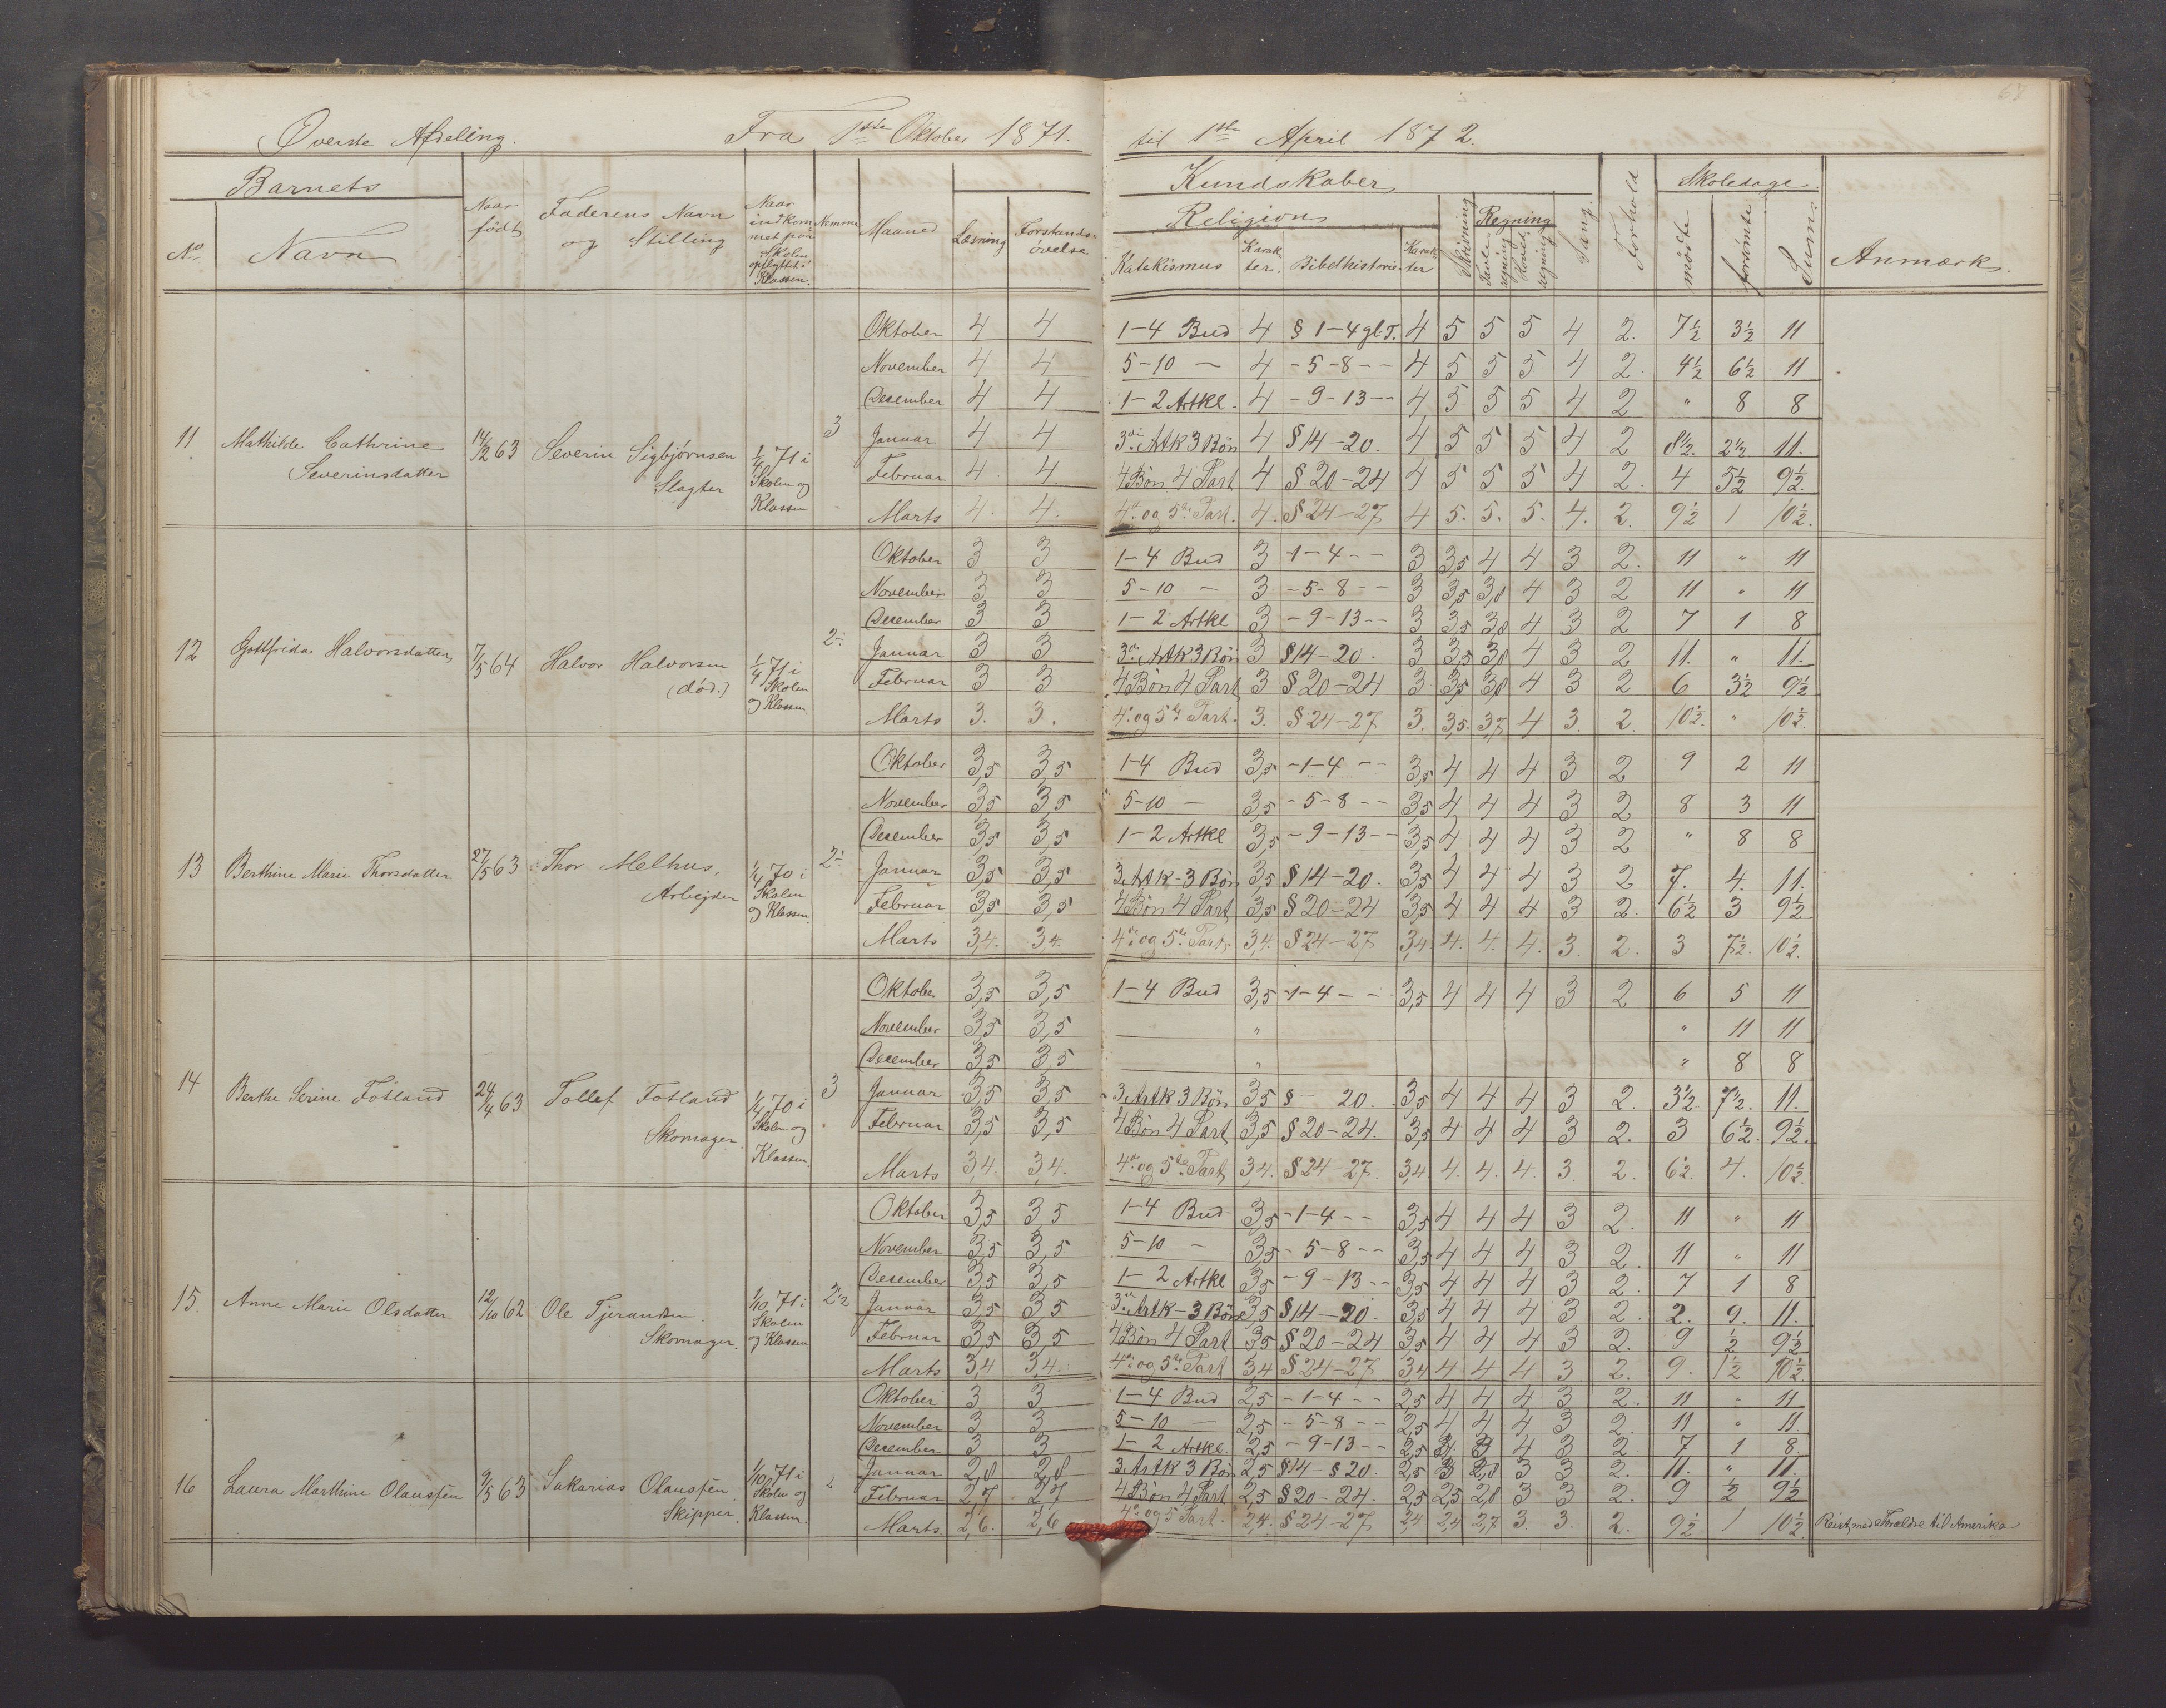 Øverste Afdeling. Fra 1ste Oktober 1871. til 1ste April 1872.
67
Barnets Kundskaber Skoledage
No Navn Naar født Faderens Navn og Stilling Naar indkommet paa Skolen opflyttet i Klassen. Nemme Maaned Læsning Forstandsøvelse Religion Katekismus Karakter. Bibelhistorie Karakter Skrivning Regning Tavleregning Hovedregning Sang. Forhold mødte forsømte Sum. Anmærk.
Oktober 4 4 1-4 Bud 4 § 1-4 gl.T. 4 5 5 5 4 2. 7½ 3½ 11
November 4 4 5-10 — 4 - 5-8 - - 4 5 5 5 4 2. 4½ 6½ 11
December 4 4 1-2 Artkl. 4 - 9-13 - - 4 5 5 5 4 2 " 8 8
11. Mathilde Cathrine Severinsdatter 14/12 63 Severin Sigbjørnsen Slagter 1/4 71 i Skolen og Klassen 3
Januar 4 4 3die Artk 3 Bøn 4 § 14-20. 4 5 5 5 4 2 8½. 2½ 11.
Februar 4. 4. 4 Bøn 4 Part 4 § 20-24 4 5 5 5 4 2. 4 5½ 9½.
Marts 4. 4. 4de og 5te Part. 4. § 24-27 4 5. 5. 5. 4. 2. 9½ 1 10½.
Oktober 3 3 1-4 Bud 3 -1-4 - - 3 3,5 4 4 3 2. 11 " 11
November 3 3 5-10 — 3 - 5-8 - - 3 3,5 3,8 4 3 2 11 " 11
December 3 3 1-2 Artkl 3 - 9-13 - - 3 3,5 3,8 4 3 2 7 1 8
12 Gottfrida Halvorsdatter 7/5 64 Halvor Halvorsen (død.) 1/4 71 i Skolen og Klassen. 2
Januar 3 3 3die Artk 3 Bøn 3 § 14-20. 3 3,5 3,8 4 3 2 11. " 11.
Februar 3 3 4 Bøn 4 Part 3 § 20-24 3 3,5 3,8 4 3 2 6 3½ 9½
Marts 3. 3. 4. og 5te Part. 3. § 24-27 3. 3,5. 3,7 4 3. 2. 10½. " 10½.
Oktober 3,5 3,5 1-4 Bud 3,5 -1-4 - - 3,5 4 4 4 3 2 9 2 11
November 3,5 3,5 5-10 — 3,5 - 5-8 - - 3,5 4 4 4 3 2 8 3 11
December 3,5 3,5 1-2 Artkl 3,5 - 9-13 - - 3,5 4 4 4 3 2 " 8 8
13 Berthine Marie Thorsdatter 27/5 63 Thor Melhus, Arbejder 1/4 70 i Skolen og Klassen 2
Januar 3,5 3,5 3 Artk - 3 Bøn 3,5 § 14-20. 3,5 4 4 4 3 2 7. 4. 11.
Februar 3,5 3,5 4 Bøn 4 Part 3,5 § 20-24 3,5 4 4 4 3 2. 6½ 3 9½
Marts 3,4. 3,4. 4de og 5te Part. 3,4. § 24-27 3,4 4. 4. 4. 3 2. 3 7½. 10½.
Oktober 3,5 3,5 1-4 Bud 3,5 -1-4 - - 3,5 4 4 4 3 2 6 5 11
November 3,5 3,5 " " 11 11
December 3,5 3,5 " " 8 8
14 Berthe Serine Fotland 24/4 63 Tollef Fotland Skomager. 1/4 70 i Skolen og Klassen. 3
Januar 3,5 3,5 3 Artk 3 Bøn 3,5 § - 20. 3,5 4 4 4 3 2. 3½ 7½. 11.
Februar 3,5 3,5 4 Bøn 4 Part 3,5 § 20-24. 3,5 4 4 4 3 2. 3 6½. 9½.
Marts 3,4. 3,4. 4de og 5te Part 3,4. § 24-27. 3,4 4. 4. 4. 3. 2. 6½. 4. 10½.
Oktober 3,5 3,5 1-4 Bud 3,5 -1-4 - - 3,5 4 4 4 3 2. 11 " 11
November 3,5 3,5 5-10 — 3,5 - 5-8 - - 3,5 4 4 4 3 2. 11 " 11
December 3,5 3,5 1-2 Artkl 3,5 - 9-13 - - 3,5 4 4 4 3 2. 7 1 8
15. Anne Marie Olsdatter 12/10 62 Ole Tjerandsen. Skomager. 1/10 71 i Skolen og Klassen 2½
Januar 3,5 3,5 3die Artk - 3 Bøn 3,5 § 14-20. 3,5 4 4 4 3 2. 2. 9. 11.
Februar 3,5 3,5 4 Bøn 4 Part 3,5 § 20-24 3,5 4 4 4 3 2. 9 ½ 9½
Marts 3,4 3,4. 4de og 5te Part 3,4 § 24-27 3,4 4 4 4 3 2. 9. 1½ 10½.
Oktober 3 3 1-4 Bud 2,5 -1-4 - - 2,5 4 4 4 3 2. 11 " 11
November 3 3 5-10 — 2,5 - 5-8 - - 2,5 4 4 4 3 2. 11 " 11
December 3 3 1-2 Artkl 2,5 - 9-13 - - 2,5 3 4 3 2 7 1 8
16 Laura Marthine Olaussen 9/5 63 Sakarias Olaussen Skipper. 1/10 71 i Skolen og Klassen. 2
Januar 2,8 2,8 3 Artk 3 Bøn 2,5 § 14-§ 20. 2,5 3 2,8 3 3 2. 11. " 11.
Februar 2,7 2,7 4 Bøn 4 Part 2,5 § 20-24. 2,5 2,5 2,8 3 3 2. 9 ½ 9½
Marts 2,6. 2,6 4de og 5 Part. 2,4. § 24-27 2,4 2,4 2,7 3. 3. 2. 9½ 1 10½. Reist med Forældre til Amerika